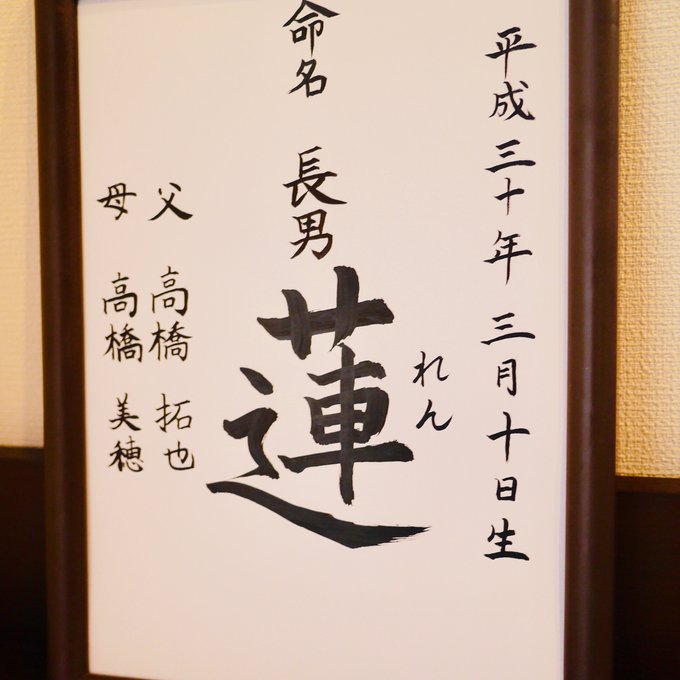 平成三十年 三月十日生
命名 長男 蓮
れん
父 高橋 拓也
母 高橋 美穂